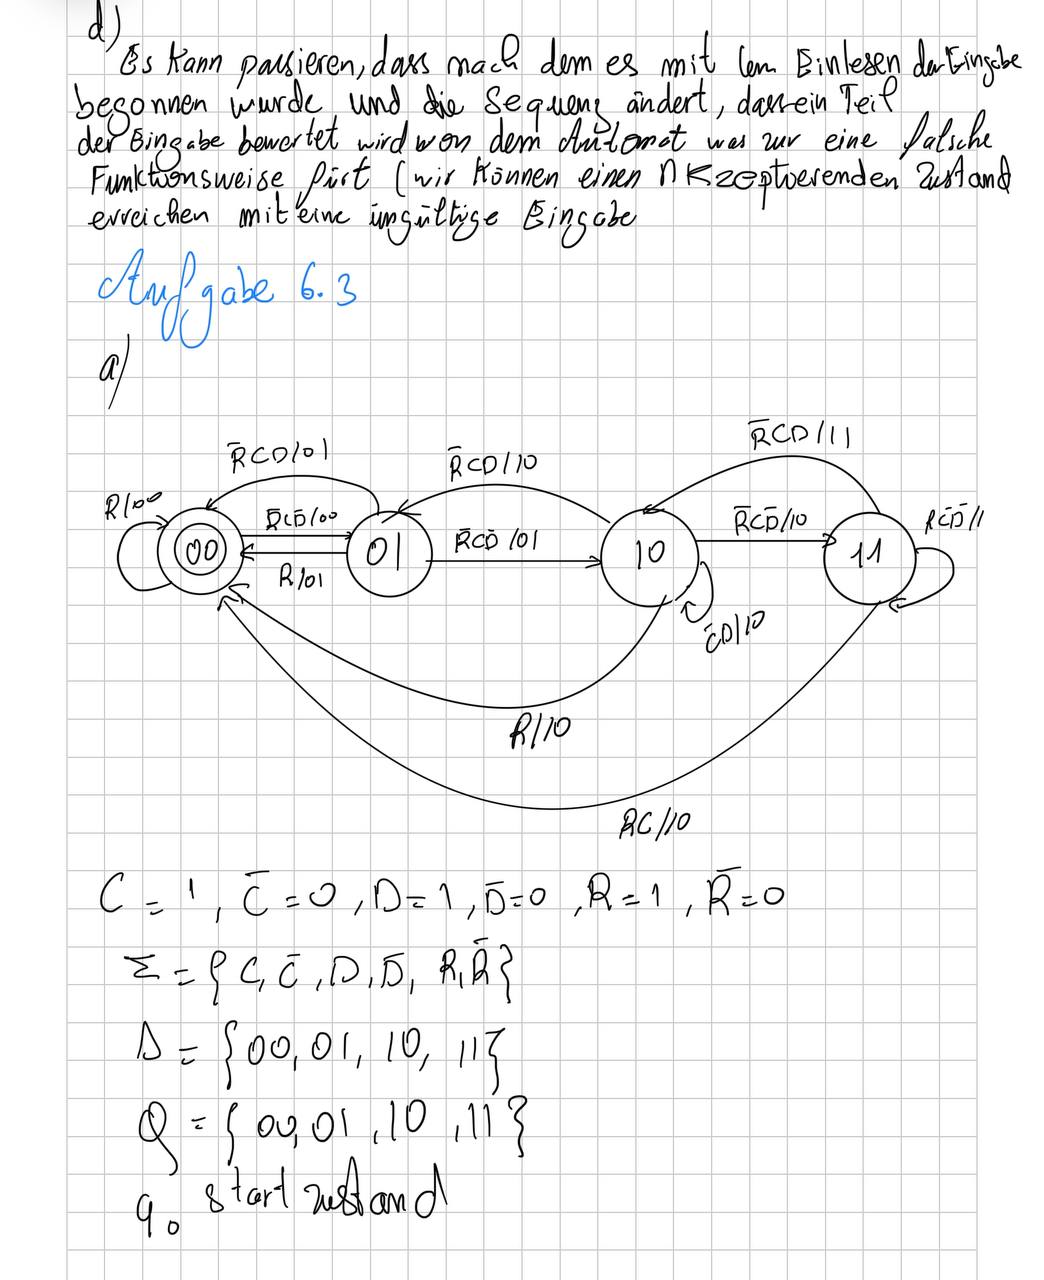 d)
Es kann passieren, dass nach dem es mit dem Einlesen der Eingabe
begonnen wurde und die Sequenz ändert, dass ein Teil
der Eingabe bewertet wird von dem Automat was zur eine falsche
Funktionsweise fürt (wir können einen Akzeptierenden Zustand
erreichen mit eine ungültige Eingabe
Aufgabe 6.3
a)
R̄CD/11
R̄CD/01 R̄CD/10
R/00 R̄CD̄/00 R̄CD̄/01 R̄CD̄/10
00 01 10 11
R/01
C̄D/10
R/10
RC/10
C = 1, C̄ = 0, D = 1, D̄ = 0, R = 1, R̄ = 0
Σ = {C, C̄, D, D̄, R, R̄}
Δ = {00, 01, 10, 11}
Q = {00, 01, 10, 11}
q₀ startzustand